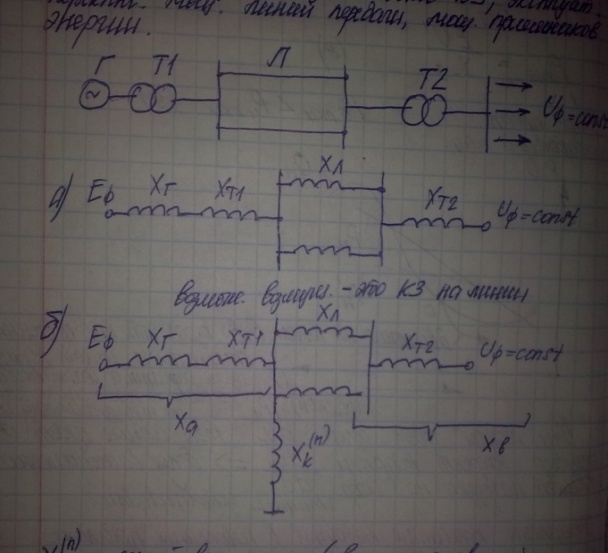 линий передачи, мощ. приемников
энергии.
Г Т1 Л Т2 Uф=const
а) Eф XГ XТ1 XЛ XТ2 Uф=const
возмож. возмущ. - это КЗ на линии
б) Eф XГ XТ1 XЛ XТ2 Uф=const
Xа Xк(n) Xв
(n)